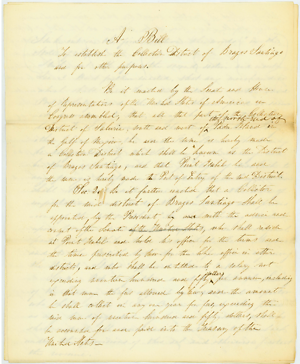 A Bill
To establish the Collection District of Brazos Santiago
and for other purposes.
Be it enacted by the Senate and House
of Representatives of the United States of America in
Congress assembled, that all that part of the Collection
District of Saluria, south and west of Padre Island in
the gulf of Mexico, be and the same is hereby made
a Collection District which shall be known as the District
of Brazos Santiago; and that Point Isabel be and
the same is hereby made the Port of Entry of the said District.
Sec. 2. Be it further enacted that a Collector
for the said district of Brazos Santiago shall be
appointed, by the President, by and with the advice and
consent of the Senate of the United States, who shall reside
at Point Isabel and hold his office for the time and
the terms prescribed by law for the like office in other
districts, and who shall be entitled to a salary not
exceeding seventeen hundred and fifty dollars, including
in that sum the fees allowed by law; and the amount
he shall collect in any one year for fees exceeding the
said sum of seventeen hundred and fifty dollars, shall
be accounted for and paid into the Treasury of the
United States.